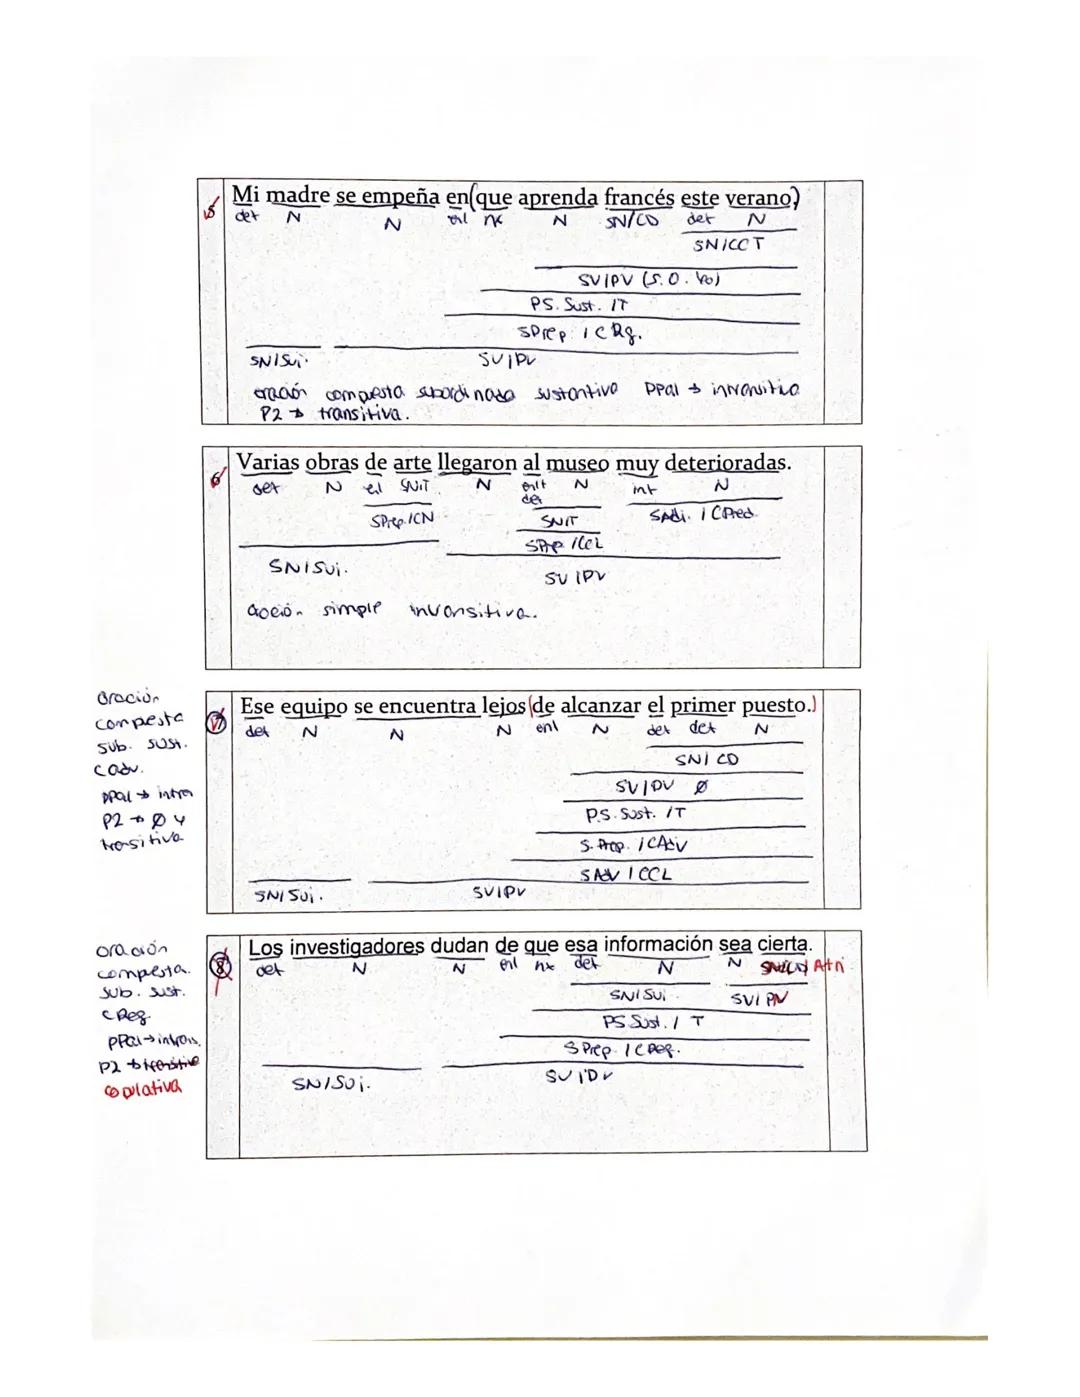 5 Mi madre se empeña en(que aprenda francés este verano)
det N N enl nx N SN/CD det N
SN/CCT
SV/PV (S.O. Yo)
PS. Sust. /T
SPrep / C Rg.
SN/Suj. SV/PV
oración compuesta subordinada sustantiva PPal → intransitiva
P2 → transitiva.
6 Varias obras de arte llegaron al museo muy deterioradas.
det N enl SN/T N enl+ N int N
det
SPrep/CN SN/T SAdj. / CPred.
SPrep /CCL
SN/Suj. SV /PV
oración simple intransitiva.
Oración
compuesta
sub. sust.
cadv.
PPal → intran
P2 → Ø y
transitiva
7 Ese equipo se encuentra lejos(de alcanzar el primer puesto.)
det N N N enl N det det N
SN/ CD
SV/PV Ø
P.S. Sust. /T
S. Prep. / CAdv
SAdv / CCL
SN/ Suj. SV/PV
oración
compuesta.
sub. sust.
CReg
PPal → intrans.
P2 → transitiva
copulativa
8 Los investigadores dudan de que esa información sea cierta.
det N N enl nx det N N Atri
SN/Suj. SV/ PV
PS Sust. / T
S Prep. / CReg.
SN/Suj. SV/PV